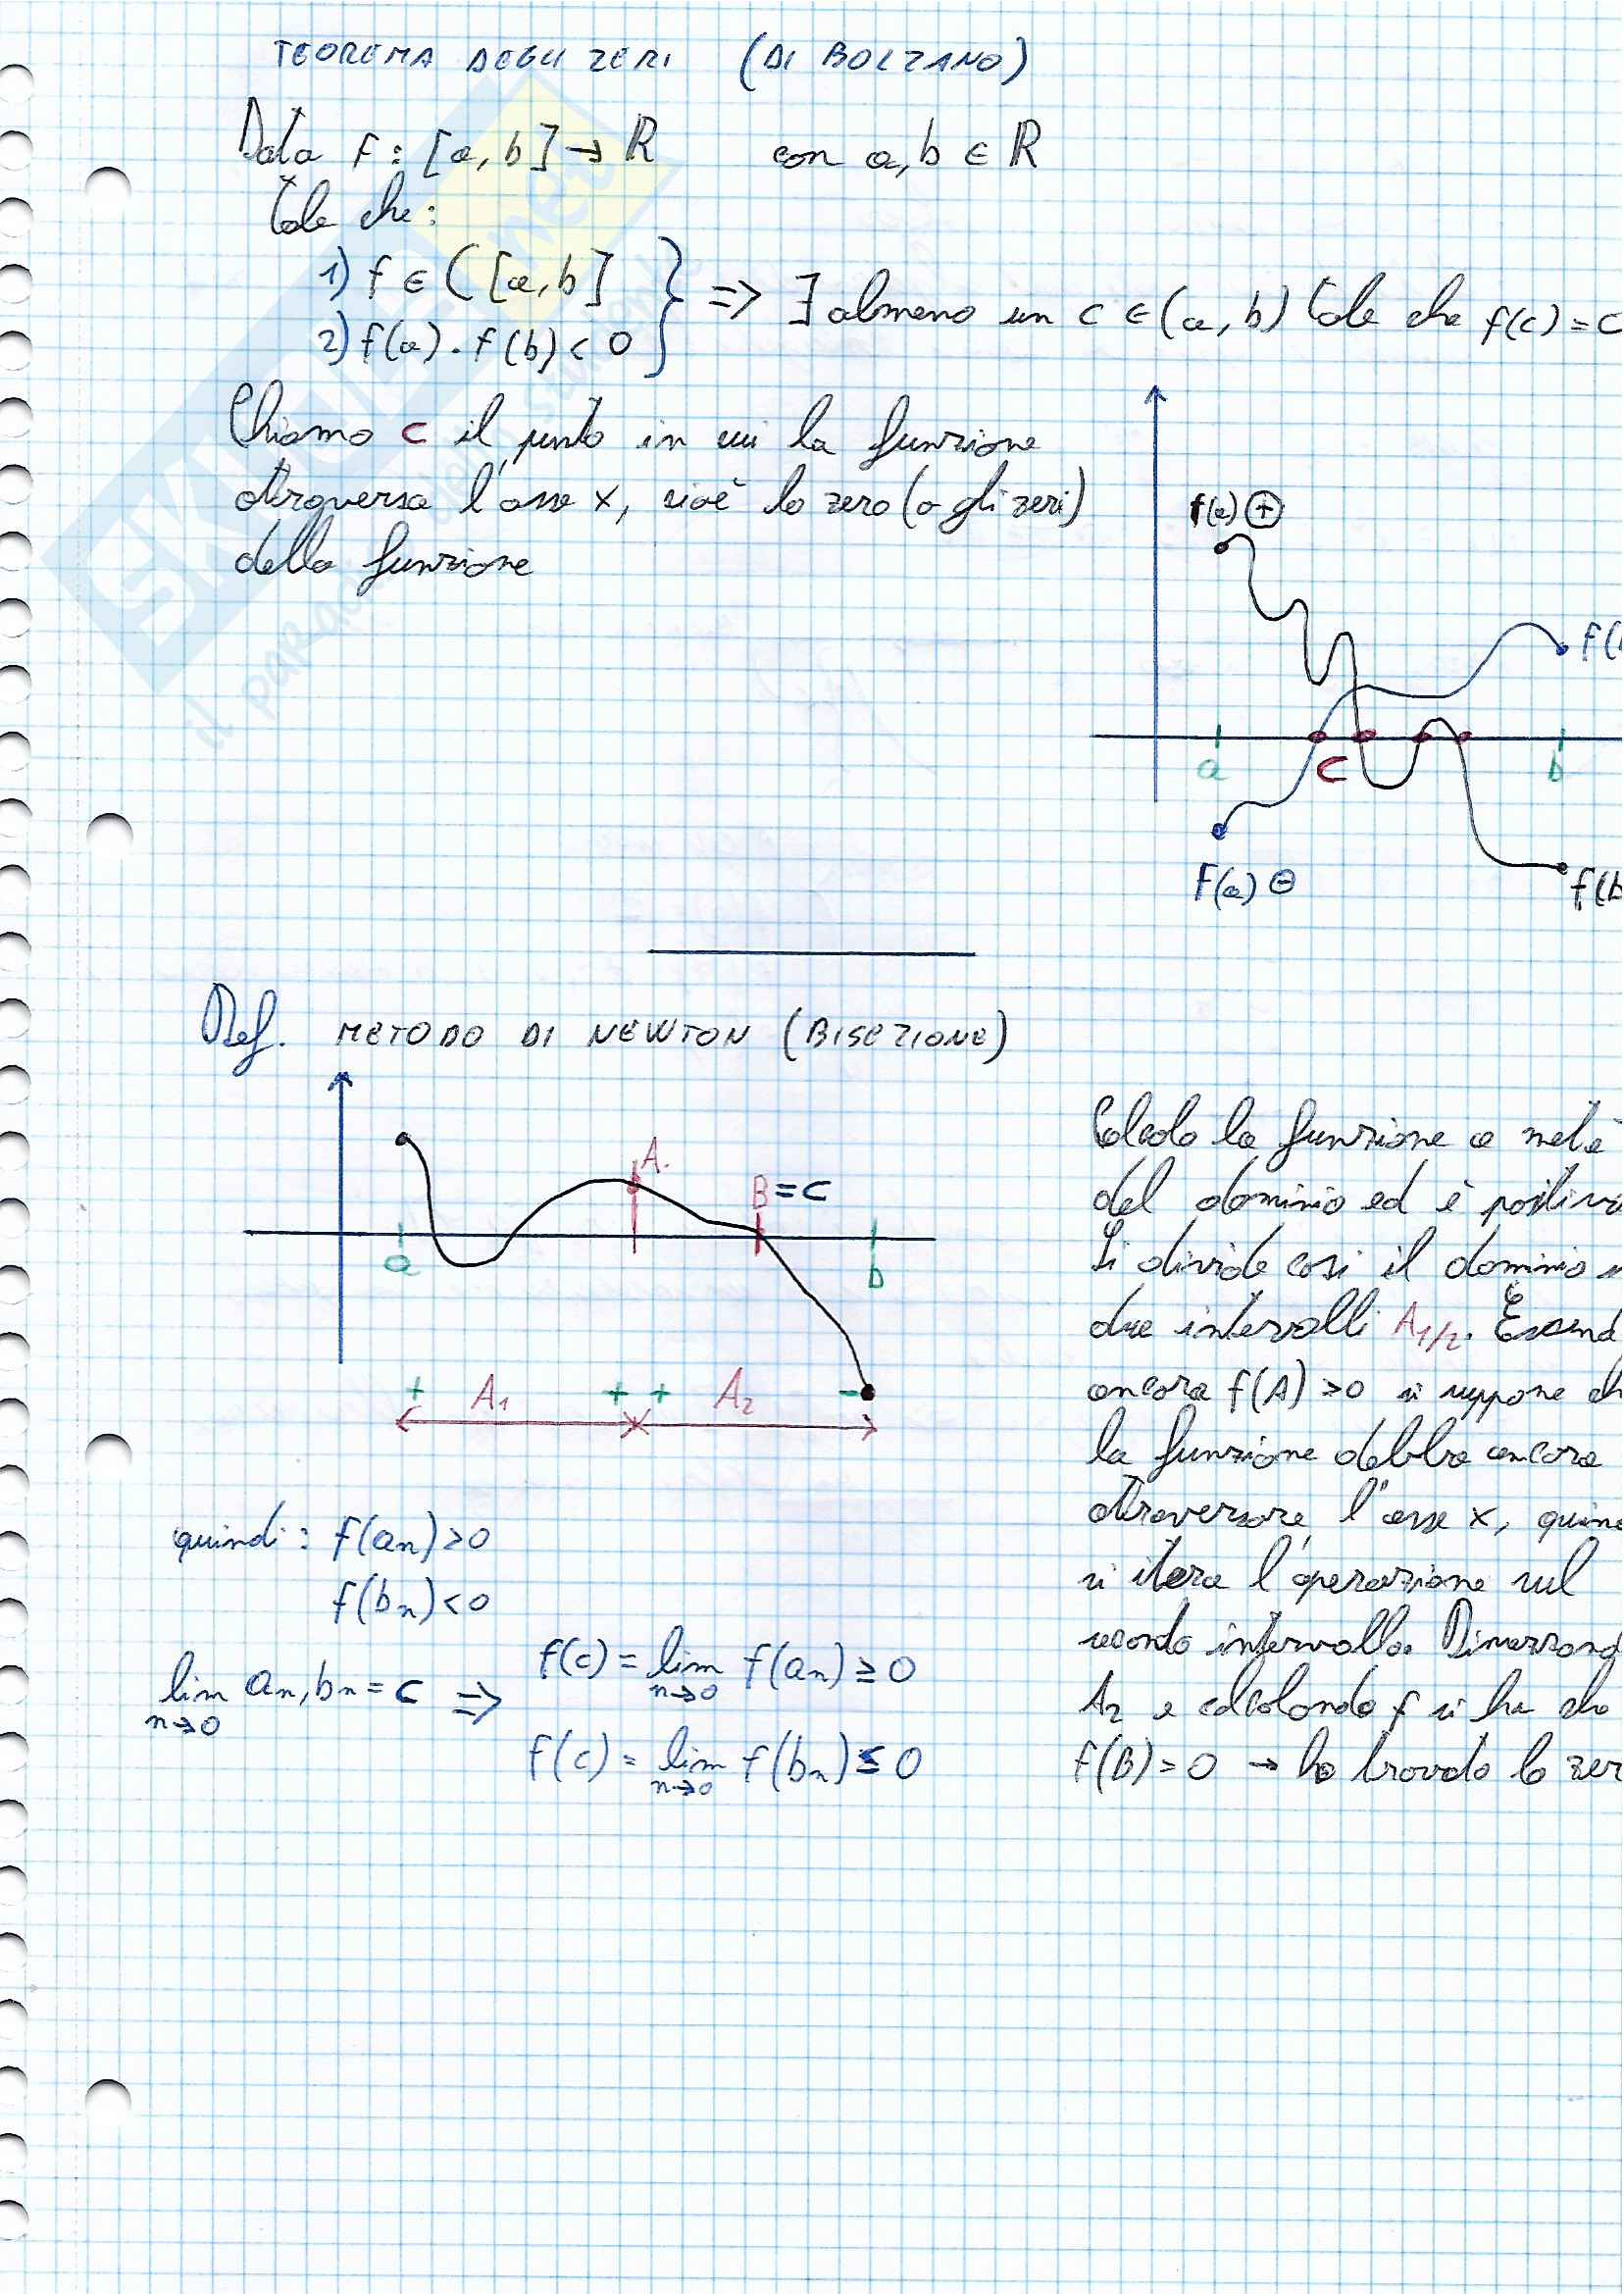 TEOREMA DEGLI ZERI (DI BOLZANO)
Data f: [a, b] → ℝ con a, b ∈ ℝ
tale che:
1) f ∈ C [a, b]
2) f(a) . f(b) < 0
} => ∃ almeno un c ∈ (a, b) tale che f(c) =
Chiamo c il punto in cui la funzione
attraversa l'asse x, cioè lo zero (o gli zeri)
della funzione
f(a) ⊕
f(
a
c
b
f(a) ⊖
f(b
Def. METODO DI NEWTON (BISEZIONE)
A.
B = c
a
b
+ A₁ + + A₂ -
Calcolo la funzione a metà
del dominio ed è positiva
Si divide così il dominio
due intervalli A₁/₂. Essend
ancora f(A) > 0 si suppone ch
la funzione debba ancora
attraversare l'asse x, quind
si itera l'operazione sul
secondo intervallo. Dimezzand
A₂ e calcolando f si ha che
f(B) = 0 → ho trovato lo zer
quindi: f(aₙ) > 0
f(bₙ) < 0
lim aₙ, bₙ = c =>
n→0
f(c) = lim f(aₙ) ≥ 0
n→0
f(c) = lim f(bₙ) ≤ 0
n→0
SKUOLA
.net